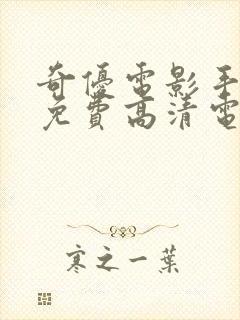 奇優電影手
免費高清電
寒之一葉